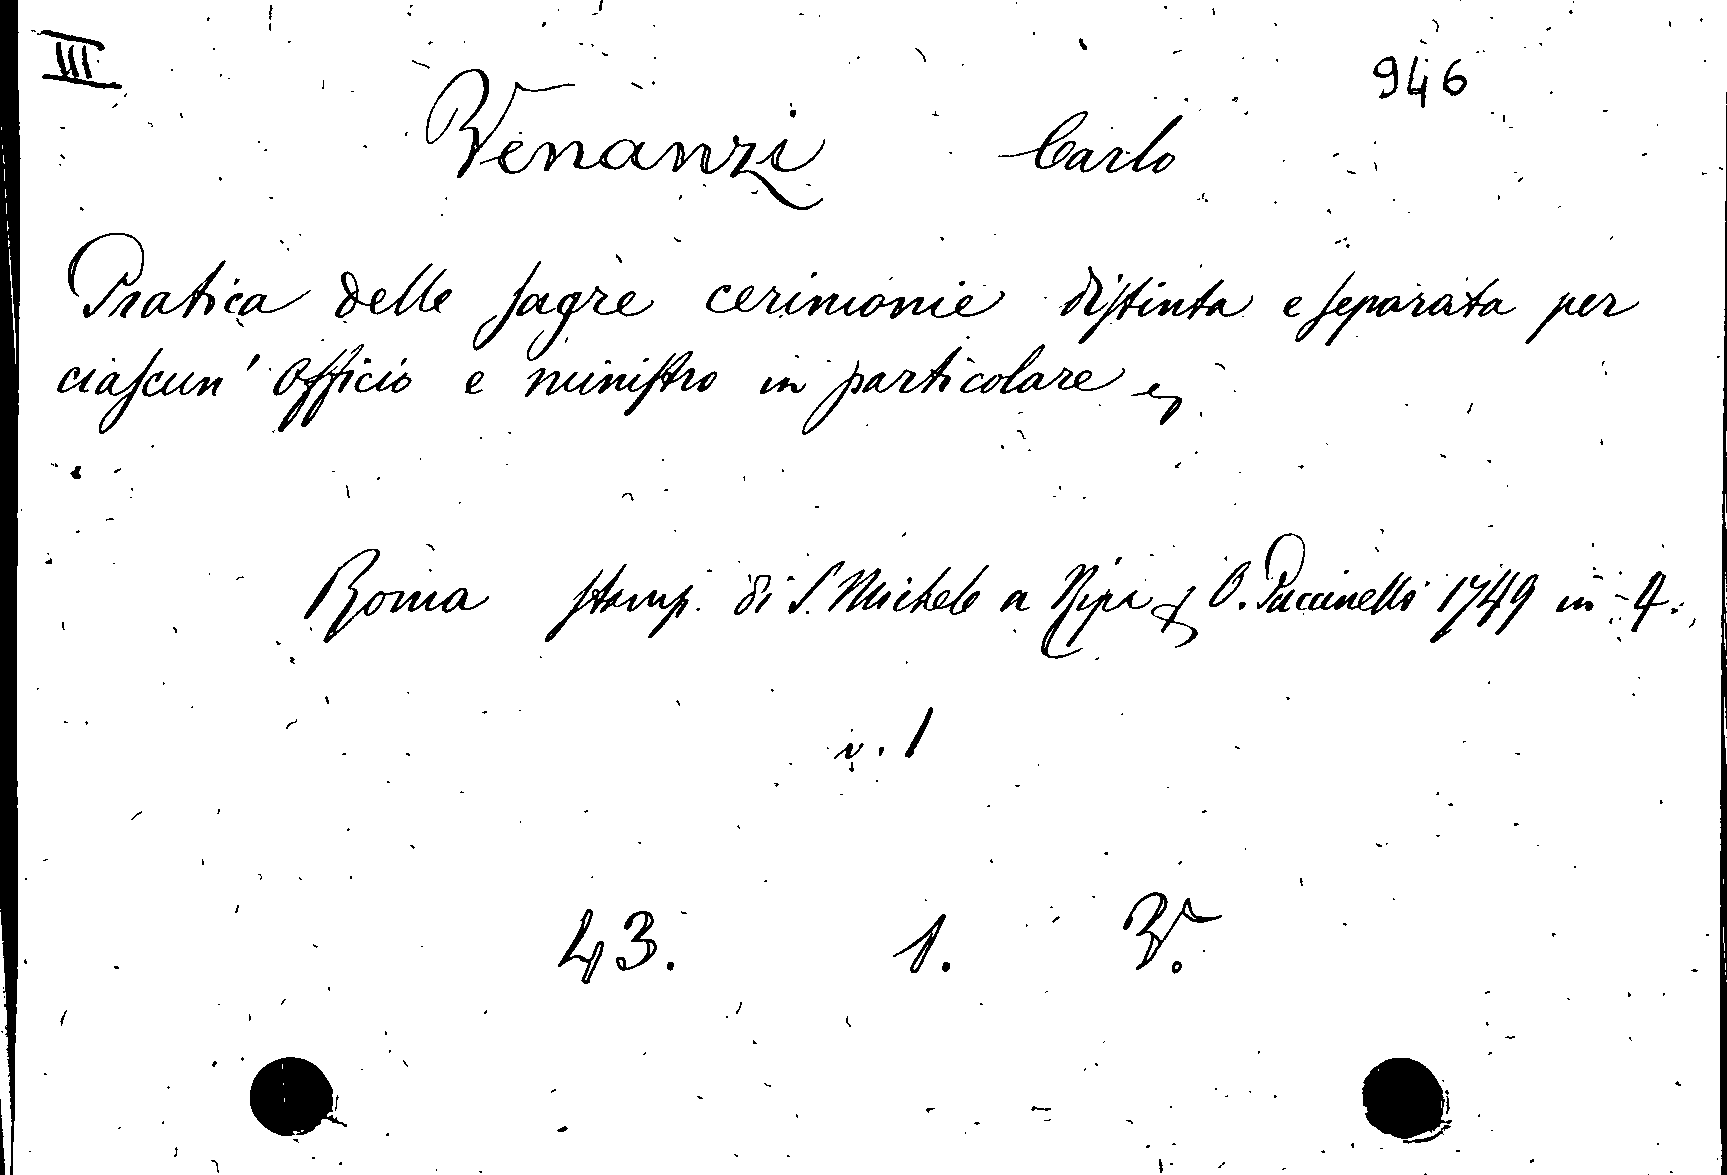 III 946
Venanzi Carlo
Pratica delle sagre cerimonie distinta e separata per
ciascun' Officio e ministro in particolare
Roma stamp. di S. Michele a Ripa O. Puccinelli 1749 in 4.
v. 1
43. 1. V.